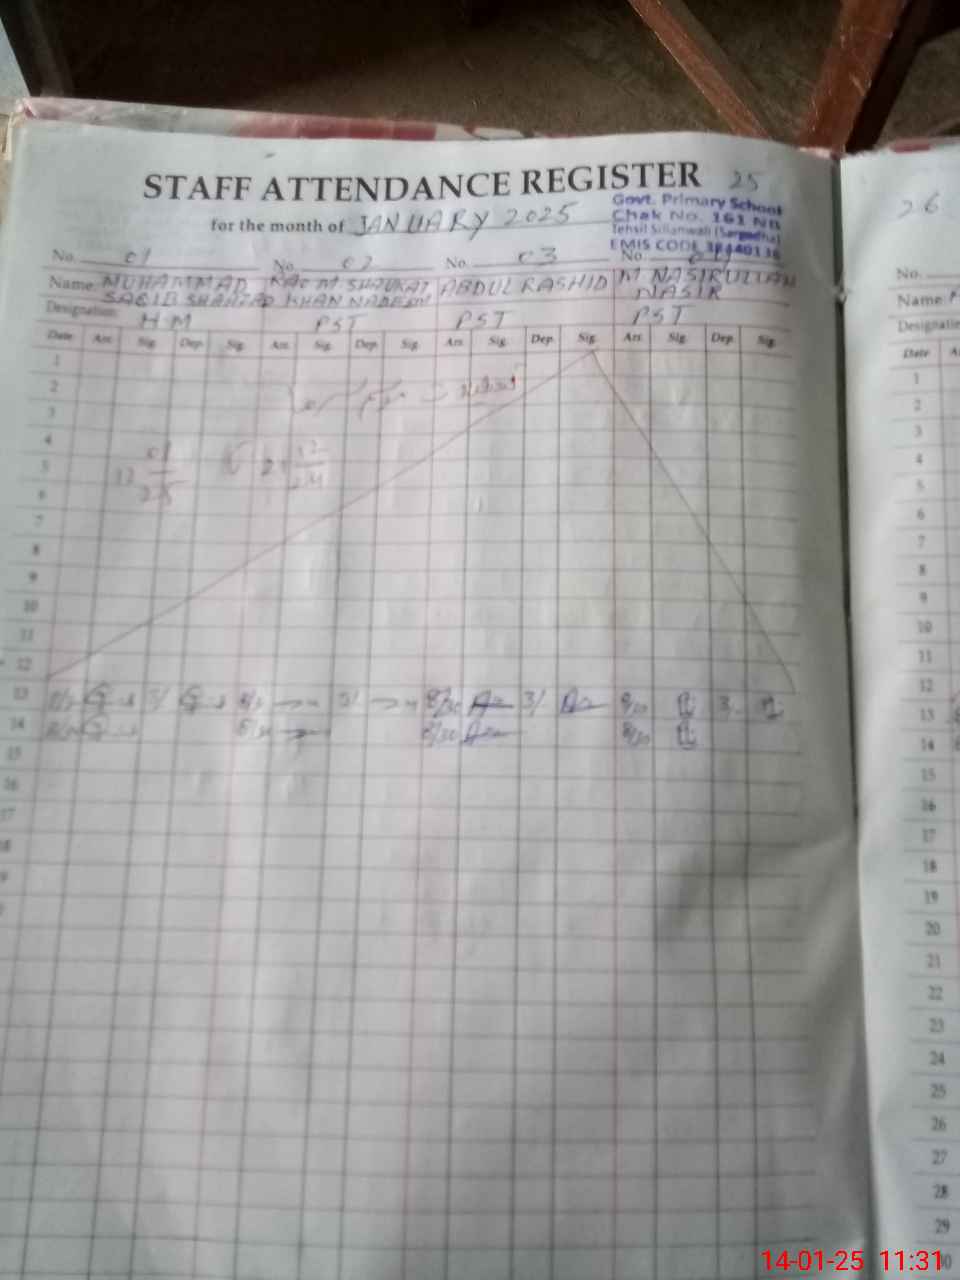 STAFF ATTENDANCE REGISTER 25
for the month of JANUARY 2025
Govt. Primary School
Chak No. 161 NB
Tehsil Sillanwali (Sargodha)
EMIS CODE
No. 01 No. 02 No. 03 No. 04
Name: MUHAMMAD SAQIB SHAHZAD
RAO M SHAUKAT KHAN NADEEM
ABDUL RASHID
M NASIRULLAH NASIR
Designation: H.M PST PST PST
Date Arr. Sig. Dep. Sig. Arr. Sig. Dep. Sig. Arr. Sig. Dep. Sig. Arr. Sig. Dep. Sig.
1
2
3
4
5
6
7
8
9
10
11
12
13 8/30 3/ 8/30 3
14 8/30 8/30 8/30
15
16
17
18
26
No.
Name
Designatio
Date
1
2
3
4
5
6
7
8
9
10
11
12
13
14
15
16
17
18
19
20
21
22
23
24
25
26
27
28
29
30
14-01-25 11:31